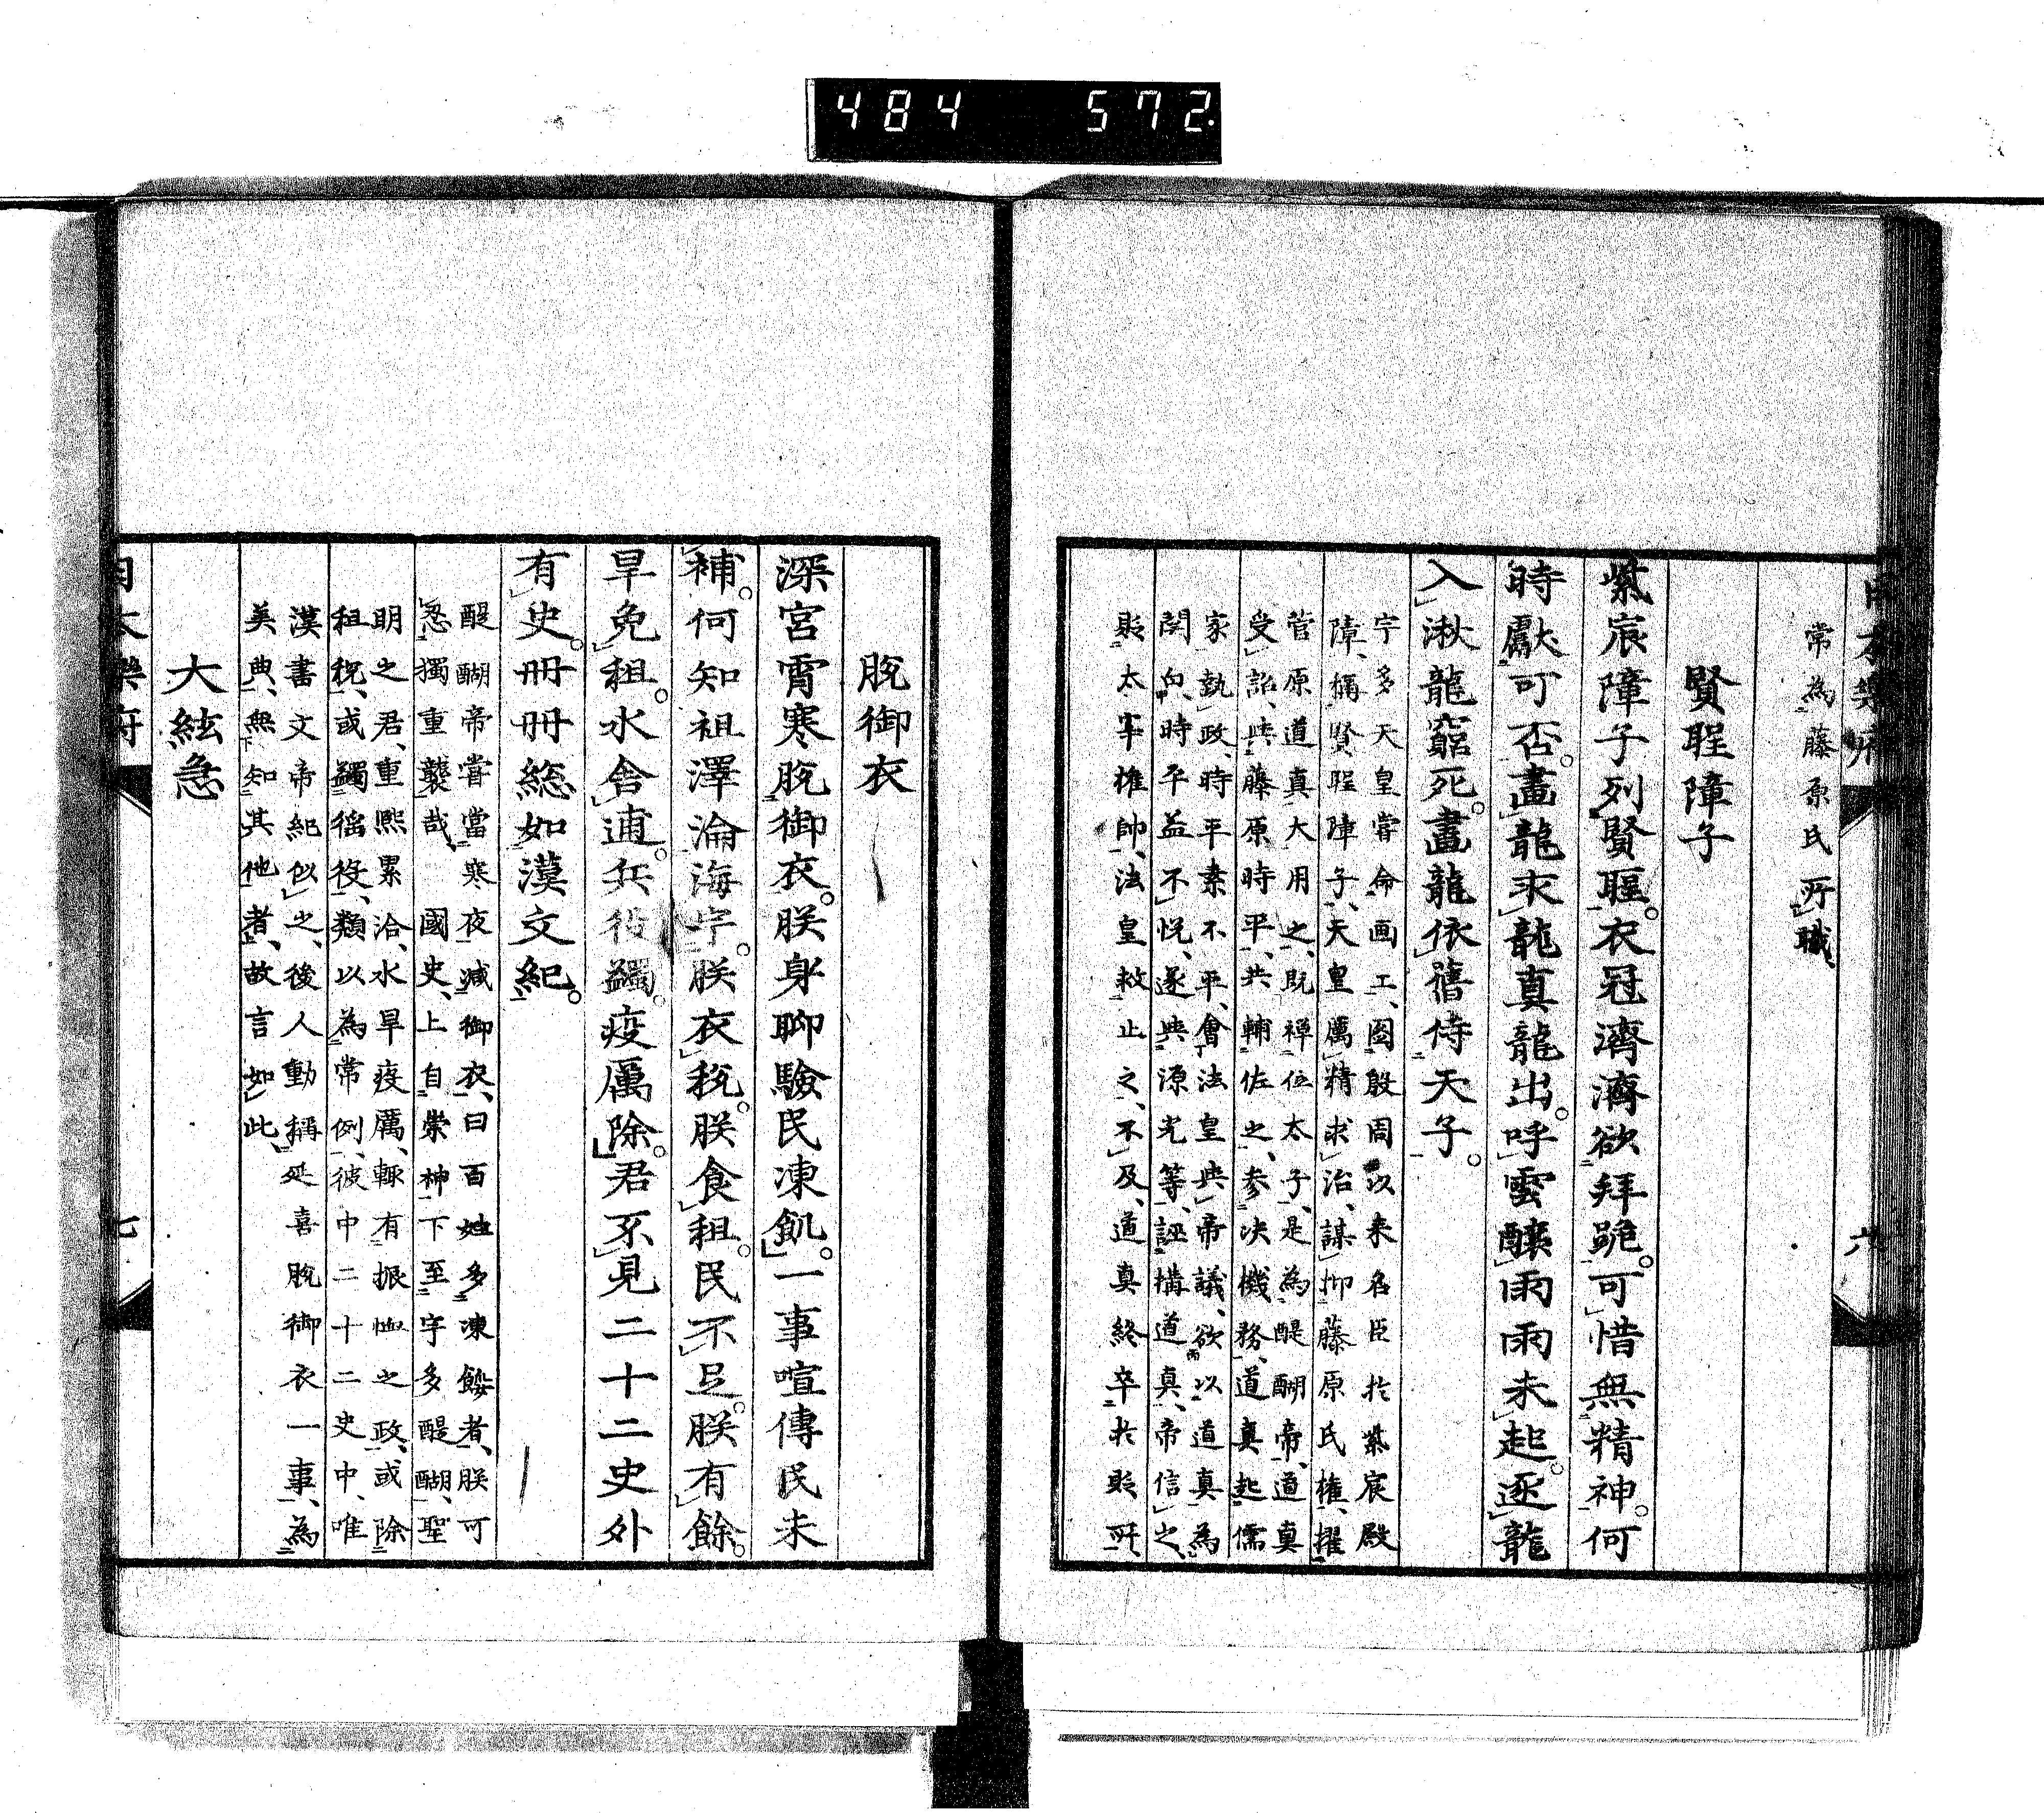 484 572.
日本樂府 六
常為藤原氏所職、
賢聖障子
紫宸障子列賢聖。衣冠濟濟欲拜跪。可惜無精神。何
時獻可否。畫龍求龍真龍出。呼雲釀雨雨未起。逐龍
入湫龍竄死。畫龍依舊侍天子。
宇多天皇嘗命画工、図殷周以来名臣於紫宸殿
障、稱賢聖障子、天皇厲精求治、謀抑藤原氏権、擢
菅原道真大用之、既禅位太子、是為醍醐帝、道真
受詔、與藤原時平、共輔佐之、参決機務、道真起儒
家執政、時平素不平、會法皇與帝議、欲以道真為
関白、時平益不悦、遂與源光等、誣構道真、帝信之、
貶太宰権帥、法皇救止之、不及、道真終卒於貶所、
脱御衣
深宮霄寒脱御衣。朕身聊驗民凍飢。一事喧傳民未
補。何知祖澤淪海宇。朕衣税。朕食租。民不足。朕有餘。
旱免租。水舎逋。兵役蠲。疫厲除。君不見二十二史外
有史。冊冊総如漢文紀。
醍醐帝嘗當寒夜減御衣、曰百姓多凍餒者、朕可
忍獨重襲哉、國史、上自崇神下至宇多醍醐、聖
明之君、重熙累洽、水旱疫厲、輒有振恤之政、或除
租税、或蠲徭役、類以為常例、彼中二十二史中、唯
漢書文帝紀似之、後人動稱延喜脱御衣一事、為
美典、無知其他者、故言如此、
大絃急
日本樂府 七